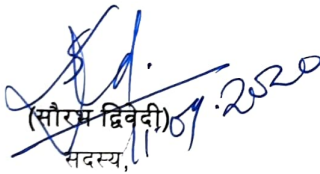 Sd.
(सौरभ द्विवेदी)
11.09.2020
सदस्य,